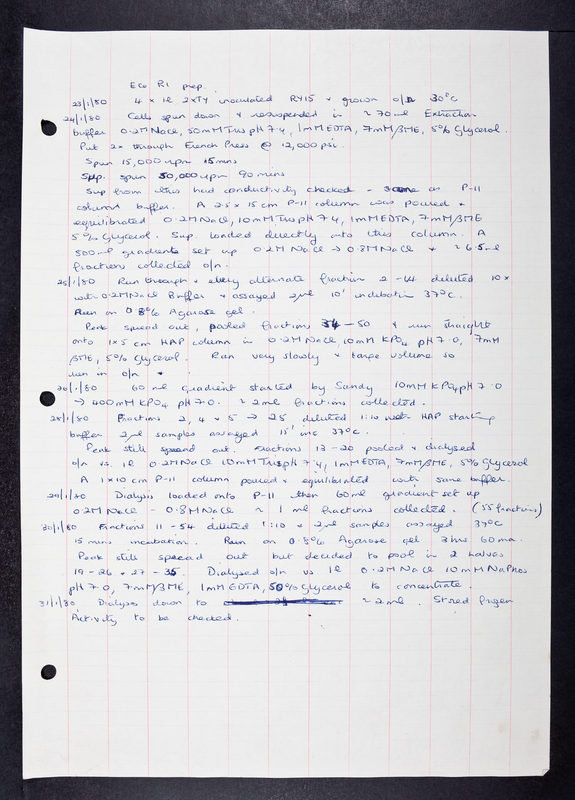 Eco R1 prep.
23/1/80 4 x 1l 2xTY inoculated RY15 & grown o/n 30°C
24/1/80 Cells spun down & resuspended in ~70ml Extraction
buffer 0.2M NaCl, 50mM Tris pH 7.4, 1mM EDTA, 7mM βME, 5% Glycerol.
Put 2x through French Press @ 12,000psi.
Spun 15,000rpm 15mins
Sup. spun 50,000rpm 90mins
Sup from this had conductivity checked - same as P-11
column buffer. A 2.5 x 15 cm P-11 column was poured &
equilibrated 0.2M NaCl, 10mM Tris pH 7.4, 1mM EDTA, 7mM βME
5% Glycerol. Sup. loaded directly onto this column. A
500ml gradient set up 0.2M NaCl → 0.8M NaCl & ~6.5ml
fractions collected o/n.
25/1/80 Run through & every alternate fraction 2-44 diluted 10x
with 0.2M NaCl Buffer & assayed 2μl 10' incubation 37°C.
Run on 0.8% Agarose gel.
Peak spread out, pooled fractions 34-50 & run straight
onto 1x5 cm HAP column in 0.2M NaCl, 10mM KPO4 pH 7.0, 7mM
βME, 5% Glycerol. Ran very slowly & large volume so
run in o/n
26/1/80 60 ml gradient started by Sandy 10mM KPO4 pH 7.0
→ 400mM KPO4 pH 7.0. ~2ml fractions collected.
28/1/80 Fractions 2, 4 & 5 → 25 diluted 1:10 HAP starting
buffer 2μl samples assayed 15' inc 37°C.
Peak still spread out. Fractions 13-20 pooled & dialysed
o/n vs. 1l 0.2M NaCl 10mM Tris pH 7.4, 1mM EDTA, 7mM βME, 5% Glycerol
A 1x10 cm P-11 column poured & equilibrated with same buffer.
29/1/80 Dialysis loaded onto P-11 then 60ml gradient set up
0.2M NaCl - 0.8M NaCl ~1 ml fractions collected. (55 fractions)
30/1/80 Fractions 11-54 diluted 1:10 & 2μl samples assayed 37°C
15 mins incubation. Run on 0.8% Agarose gel 3hrs 60ma.
Peak still spread out but decided to pool in 2 halves
19-26 & 27-35. Dialysed o/n vs 1l 0.2M NaCl 10mM NaPhos
pH 7.0, 7mM βME, 1mM EDTA, 50% Glycerol to concentrate.
31/1/80 Dialysis down to ~2ml. Stored frozen
Activity to be checked.